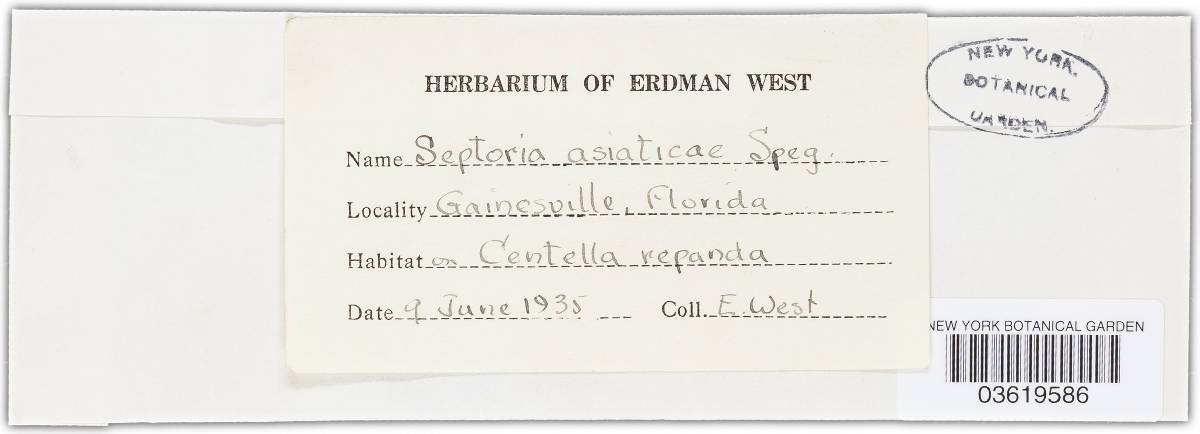 HERBARIUM OF ERDMAN WEST
Name Septoria asiaticae Speg.
Locality Gainesville, Florida
Habitat on Centella repanda
Date 9 June 1935 Coll. E. West
NEW YORK
BOTANICAL
GARDEN.
NEW YORK BOTANICAL GARDEN
03619586